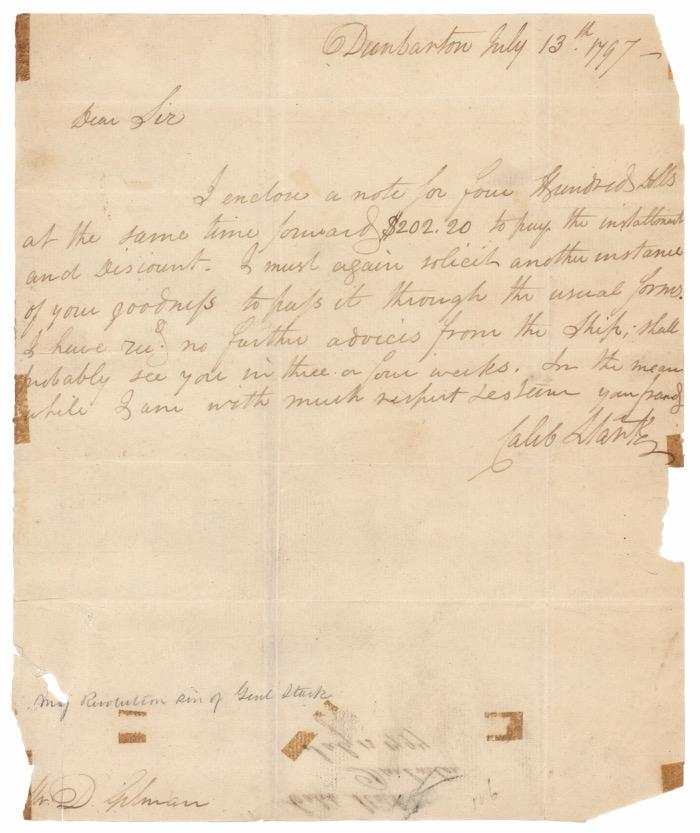 Dunbarton July 13.th 1797 —
Dear Sir
I enclose a note for four Hundred Dolls
at the same time forward $202.20 to pay the installment
and Discount. I must again solicit another instance
of your goodness to pass it through the usual forms.
I have recd. no further advices from the Ship; shall
probably see you in three or four weeks. In the mean
while I am with much respect & esteem your friend
Caleb Stark
Maj Revolution son of Genl Stark
D. Gilman